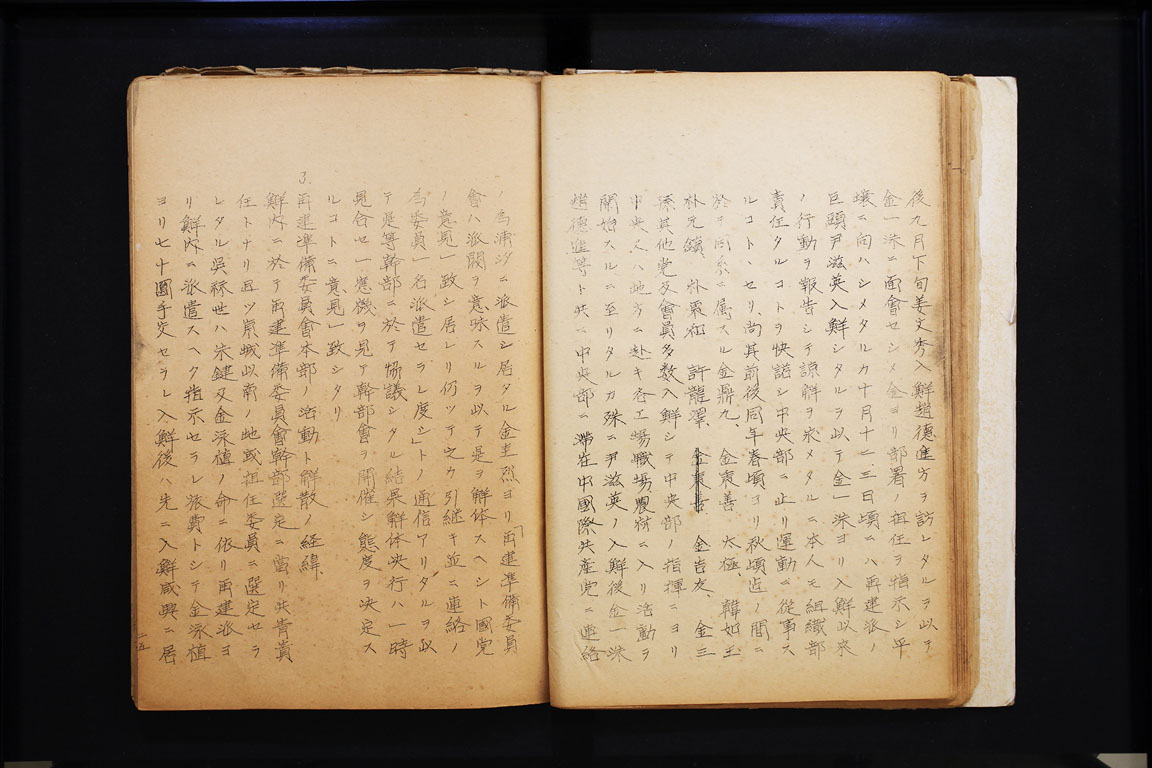 後九月下旬姜文秀入鮮趙德進方ヲ訪レタルヲ以テ
金一洙ニ面會セシメ金ヨリ部署 担任ヲ指示シ平
壤ニ向ハシメタルカ十月十二、三日頃ニハ再建派ノ
巨頭尹滋英入鮮シタルヲ以テ金一洙ヨリ入鮮以来
ノ行動ヲ報告シテ諒解ヲ求メタルニ本人モ組織部
責任タルコトヲ快諾シ中央部ニ止リ運動ニ從事ス
ルコトヽセリ、尚其前後同年春頃ヨリ秋頃迄ノ間ニ
於テ同系ニ属スル金鼎九、 金東善 太極、 韓如玉
朴元鎮、 朴 和 許龍澤、 金東善 金吉友、 金三
其他党及會員多数入鮮シテ中央部ノ指揮ニヨリ
中央又ハ地方ニ赴キ各工場職場農村ニ入リ活動ヲ
開始スルニ至リタルカ殊ニ尹滋英ノ入鮮後金一洙
趙德進等ト共ニ中央部ニ滞在中國際共産党ニ連絡
ノ為浦汐ニ派遣シ居タル金圭烈ヨリ「再建準備委員
會ハ派閥ヲ意味スルヲ以テ是ヲ解体スヘシト國党
ノ意見一致シ居レリ仍ッテ之カ引継キ並ニ連絡ノ
為委員一名派遣セラレ度シ」トノ通信アリタルヲ以
テ是等幹部ニ於テ協議シタル結果解体決行ハ一時
見合セ一應機ヲ見テ幹部會ヲ開催シ態度ヲ決定ス
ルコトニ意見一致シタリ
3. 再建準備委員會本部ノ活動ト解散ノ経緯
鮮内ニ於テ再建準備委員會幹部選定ニ當リ共青責
任トナリ且ツ京城以南ノ地域担任委員ニ選定セラ
レタル吳祘世ハ朱鍵及金泳植ノ命ニ依リ再建派ヨ
リ鮮内ニ派遣スヘク指示セラレ旅費トシテ金泳植
ヨリ七十圓手交セラレ入鮮後ハ先ニ入鮮咸興ニ居
二五